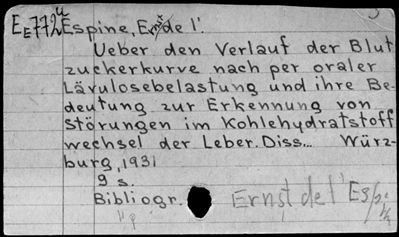 EE772u Espine, Ernst de l'.
Ueber den Verlauf der Blut
zuckerkurve nach per oraler
Lävulosebelastung und ihre Be-
deutung zur Erkennung von
Störungen im Kohlehydratstoff
wechsel der Leber. Diss... Würz-
burg, 1931
9 s.
Bibliogr.
Ernst de l'Espi